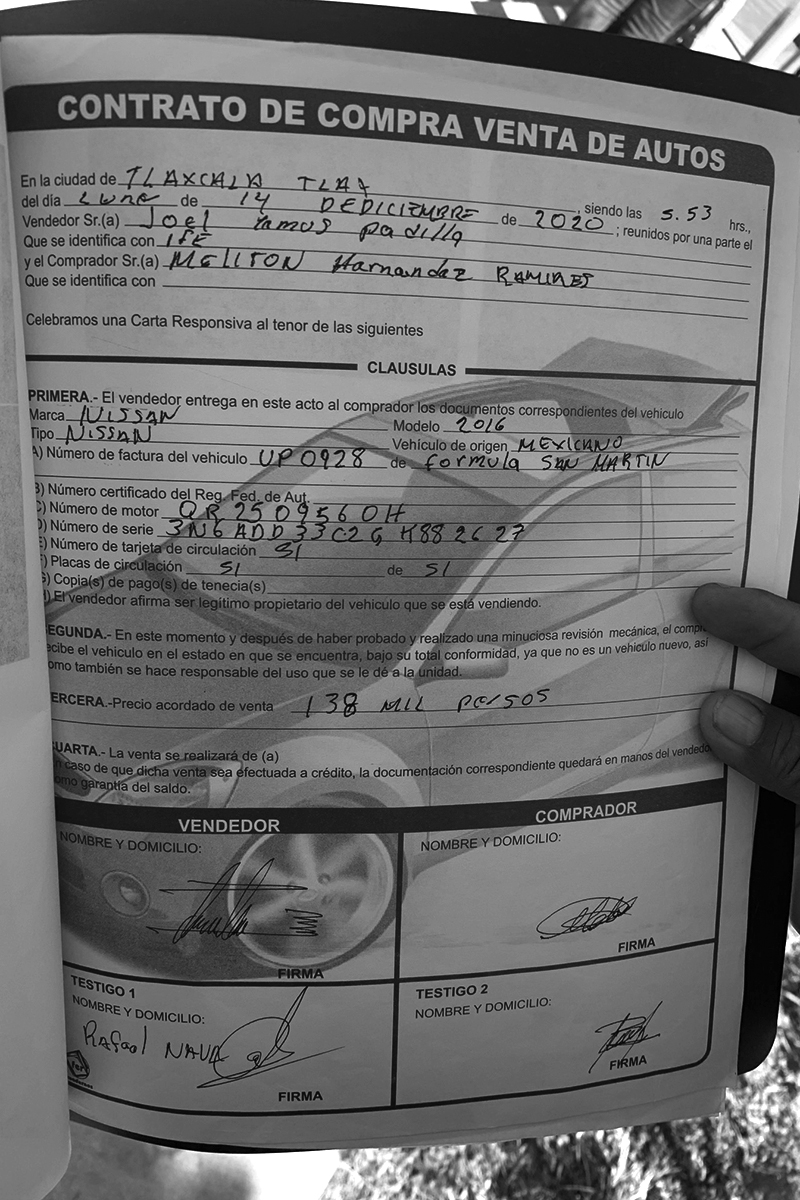 CONTRATO DE COMPRA VENTA DE AUTOS
En la ciudad de TLAXCALA TLAX
del día Lune de 14 DEDICIEMBRE de 2020, siendo las 5.53 hrs.,
Vendedor Sr.(a) Joel ramos padilla ; reunidos por una parte el
Que se identifica con IFE
y el Comprador Sr.(a) MELITON Harnandez RAMIRES
Que se identifica con
Celebramos una Carta Responsiva al tenor de las siguientes
CLAUSULAS
PRIMERA.- El vendedor entrega en este acto al comprador los documentos correspondientes del vehiculo
Marca NISSAN Modelo 2016
Tipo NISSAN Vehículo de origen MEXICANO
A) Número de factura del vehiculo UP0928 de formula SAN MARTIN
B) Número certificado del Reg. Fed. de Aut.
C) Número de motor QR 250 9560H
D) Número de serie 3N6ADD33C2GK882627
E) Número de tarjeta de circulación SI
F) Placas de circulación SI de SI
G) Copia(s) de pago(s) de tenecia(s)
H) El vendedor afirma ser legítimo propietario del vehiculo que se está vendiendo.
EGUNDA.- En este momento y después de haber probado y realizado una minuciosa revisión mecánica, el compr
ecibe el vehiculo en el estado en que se encuentra, bajo su total conformidad, ya que no es un vehiculo nuevo, así
omo también se hace responsable del uso que se le dé a la unidad.
ERCERA.-Precio acordado de venta 138 MIL persos
UARTA.- La venta se realizará de (a)
n caso de que dicha venta sea efectuada a crédito, la documentación correspondiente quedará en manos del vendedo
omo garantía del saldo.
VENDEDOR COMPRADOR
NOMBRE Y DOMICILIO: NOMBRE Y DOMICILIO:
FIRMA FIRMA
TESTIGO 1 TESTIGO 2
NOMBRE Y DOMICILIO: NOMBRE Y DOMICILIO:
Rafael NAVA
FIRMA FIRMA